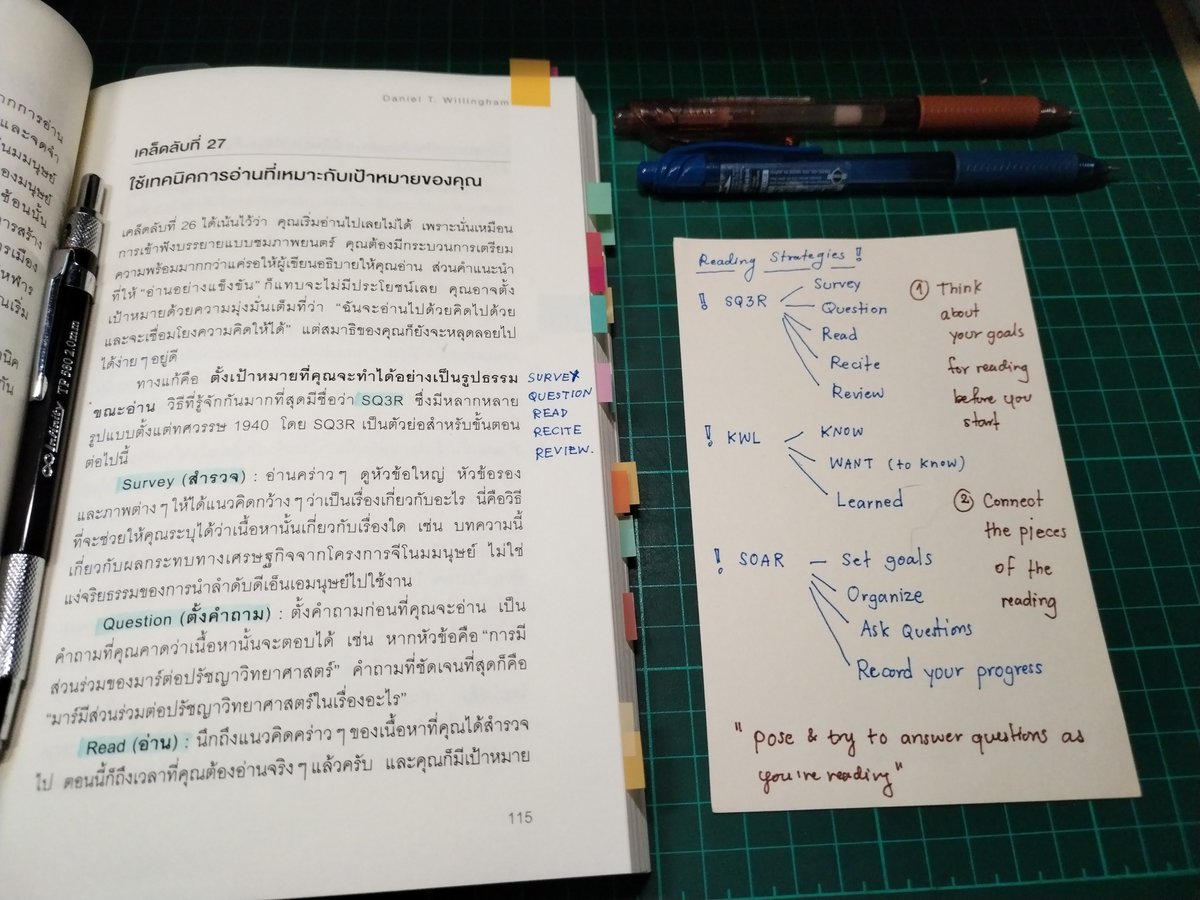 Daniel T. Willingham
เคล็ดลับที่ 27
ใช้เทคนิคการอ่านที่เหมาะกับเป้าหมายของคุณ
เคล็ดลับที่ 26 ได้เน้นไว้ว่า คุณเริ่มอ่านไปเลยไม่ได้ เพราะนั่นเหมือน
การเข้าฟังบรรยายแบบชมภาพยนตร์ คุณต้องมีกระบวนการเตรียม
ความพร้อมมากกว่าแค่รอให้ผู้เขียนอธิบายให้คุณอ่าน ส่วนคำแนะนำ
ที่ให้ "อ่านอย่างแข็งขัน" ก็แทบจะไม่มีประโยชน์เลย คุณอาจตั้ง
เป้าหมายด้วยความมุ่งมั่นเต็มที่ว่า "ฉันจะอ่านไปด้วยคิดไปด้วย
และจะเชื่อมโยงความคิดให้ได้" แต่สมาธิของคุณก็ยังจะหลุดลอยไป
ได้ง่ายๆ อยู่ดี
ทางแก้คือ ตั้งเป้าหมายที่คุณจะทำได้อย่างเป็นรูปธรรม
ขณะอ่าน วิธีที่รู้จักกันมากที่สุดมีชื่อว่า SQ3R ซึ่งมีหลากหลาย
รูปแบบตั้งแต่ทศวรรษ 1940 โดย SQ3R เป็นตัวย่อสำหรับขั้นตอน
ต่อไปนี้
Survey (สำรวจ) : อ่านคร่าวๆ ดูหัวข้อใหญ่ หัวข้อรอง
และภาพต่างๆ ให้ได้แนวคิดกว้างๆ ว่าเป็นเรื่องเกี่ยวกับอะไร นี่คือวิธี
ที่จะช่วยให้คุณระบุได้ว่าเนื้อหานั้นเกี่ยวกับเรื่องใด เช่น บทความนี้
เกี่ยวกับผลกระทบทางเศรษฐกิจจากโครงการจีโนมมนุษย์ ไม่ใช่
แง่จริยธรรมของการนำลำดับดีเอ็นเอมนุษย์ไปใช้งาน
Question (ตั้งคำถาม) : ตั้งคำถามก่อนที่คุณจะอ่าน เป็น
คำถามที่คุณคาดว่าเนื้อหานั้นจะตอบได้ เช่น หากหัวข้อคือ "การมี
ส่วนร่วมของมาร์ต่อปรัชญาวิทยาศาสตร์" คำถามที่ชัดเจนที่สุดก็คือ
"มาร์มีส่วนร่วมต่อปรัชญาวิทยาศาสตร์ในเรื่องอะไร"
Read (อ่าน) : นึกถึงแนวคิดคร่าวๆ ของเนื้อหาที่คุณได้สำรวจ
ไป ตอนนี้ก็ถึงเวลาที่คุณต้องอ่านจริงๆ แล้วครับ และคุณก็มีเป้าหมาย
115
SURVEY
QUESTION
READ
RECITE
REVIEW.
Infinity TP 580 2.0mm
Reading Strategies !
! SQ3R
Survey
Question
Read
Recite
Review
! KWL
KNOW
WANT (to know)
Learned
! SOAR
Set goals
Organize
Ask Questions
Record your progress
① Think
about
your goals
for reading
before you
start
② Connect
the pieces
of the
reading
" pose & try to answer questions as
you're reading"